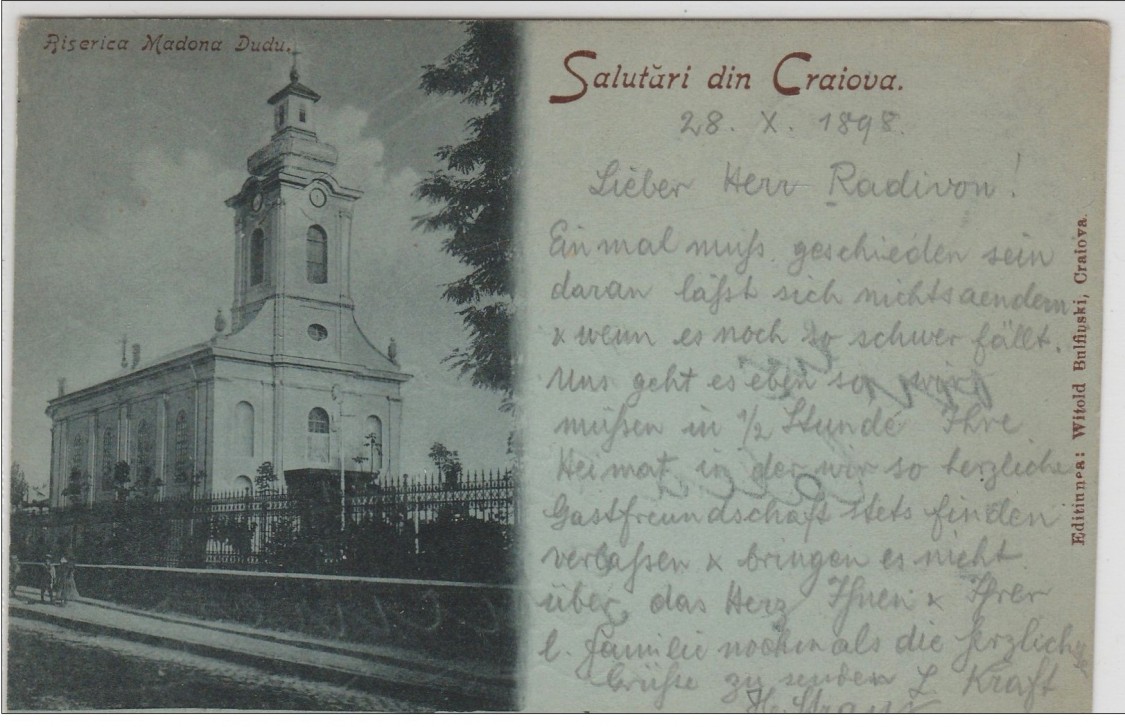 Biserica Madona Dudu.
Salutări din Craiova.
28. X. 1898.
Lieber Herr Radivon!
Einmal muſs geschieden sein
daran läſst sich nichts aendern
& wenn es noch so schwer fällt.
Uns geht es eben so, wir
müſsen in 1/2 Stunde Ihre
Heimat, in der wir so herzliche
Gastfreundschaft stets finden
verlaſsen & bringen es nicht
über das Herz Ihnen & Ihrer
l. Familie nochmals die herzlichen
Grüſse zu senden L Kraft
H. Straus
Editiunea: Witold Bulfiński, Craiova.